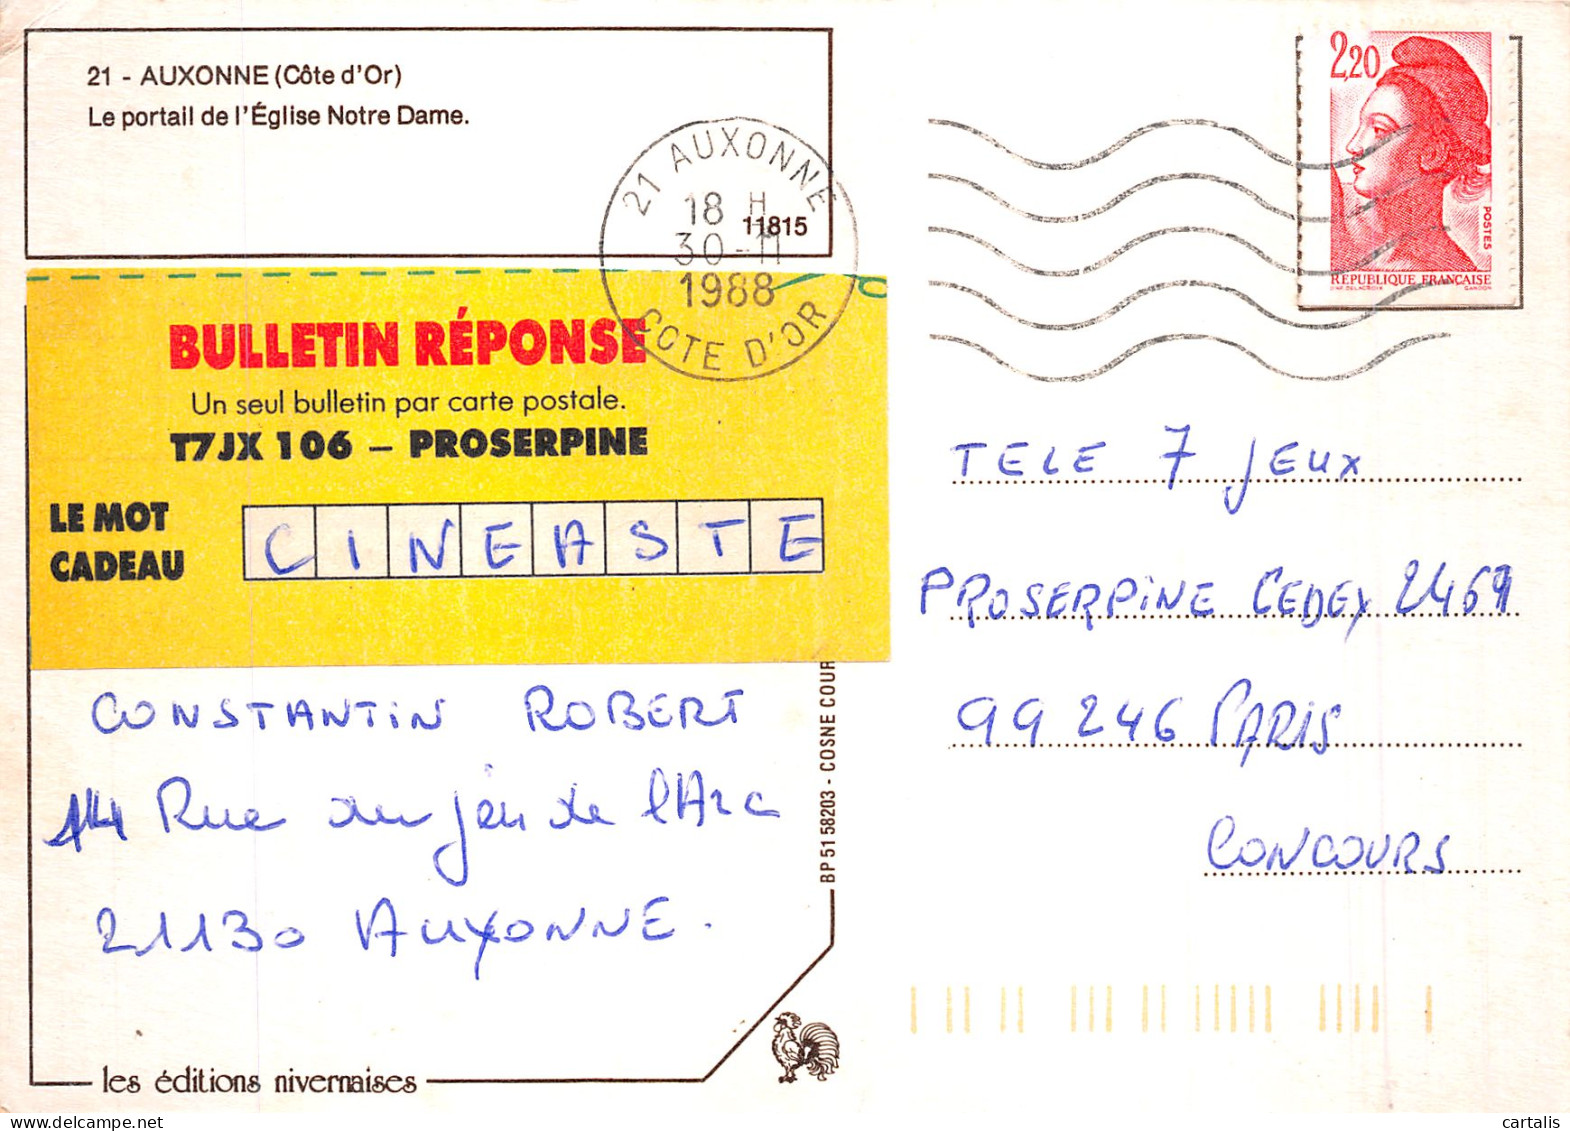 21 - AUXONNE (Côte d'Or)
Le portail de l'Église Notre Dame.
11815
21 AUXONNE
18 H
30-11
1988
COTE D'OR
2,20
POSTES
RÉPUBLIQUE FRANÇAISE
D'AP. DELACROIX GANDON
BULLETIN RÉPONSE
Un seul bulletin par carte postale.
T7JX 106 – PROSERPINE
LE MOT
CADEAU
CINEASTE
CONSTANTIN ROBERT
14 Rue du jeu de l'Arc
21130 AUXONNE.
TELE 7 JEUX
PROSERPINE CEDEX 2469
99246 PARIS
CONCOURS
BP 51 58203 - COSNE COUR
les éditions nivernaises
cartalis